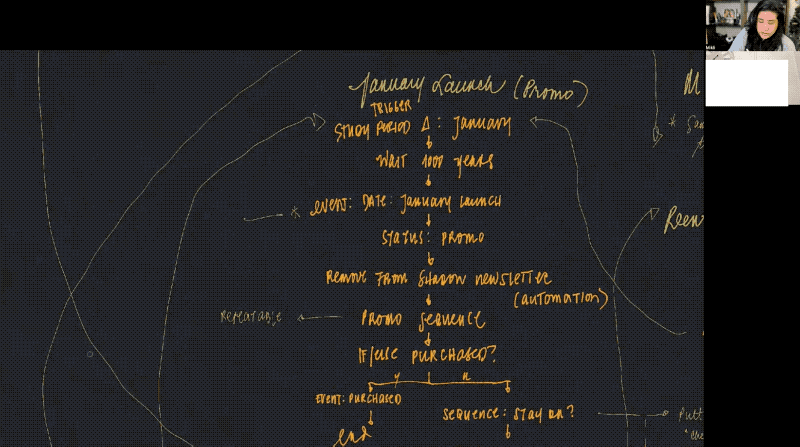 January Launch (Promo)
TRIGGER
STUDY PERIOD Δ: January
WAIT 1000 years
* EVENT: DATE: January Launch
STATUS: PROMO
Remove From Shadow Newsletter
(automation)
Repeatable
Promo Sequence
IF/ELSE PURCHASED?
Y
N
EVENT: PURCHASED
End
Sequence: Stay on?
M
*
Reen
Putt